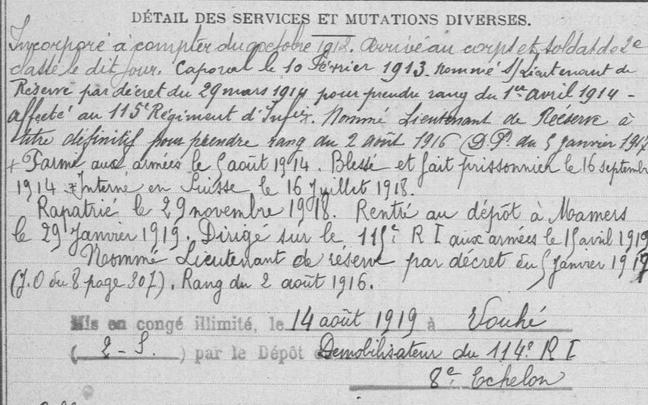 DÉTAIL DES SERVICES ET MUTATIONS DIVERSES.
Incorporé à compter du 9 octobre 1912. Arrivé au corps et soldat de 2e
classe le dit jour. Caporal le 10 Février 1913. nommé s/Lieutenant de
Réserve par décret du 29 mars 1914 pour prendre rang du 1er avril 1914 -
affecté au 115e Régiment d'Infie. Nommé Lieutenant de Réserve à
titre définitif pour prendre rang du 2 août 1916 (D.P. du 5 janvier 1917
+ aux armées le 5 août 1914. Blessé et fait prissonnier le 16 septembre
1914 + Interné en Suisse le 16 Juillet 1918.
Rapatrié le 29 novembre 1918. Rentré au dépôt à Mamers
le 29 Janvier 1919. Dirigé sur le 115e R I aux armées le 15 avril 1919
Nommé Lieutenant de réserve par décret du 5 Janvier 1917
(J.O du 8 page 307). Rang du 2 août 1916.
Mis en congé illimité, le 14 août 1919 à Vouhé
(2-S.) par le Dépôt Démobilisateur du 114e R I
8e Echelon